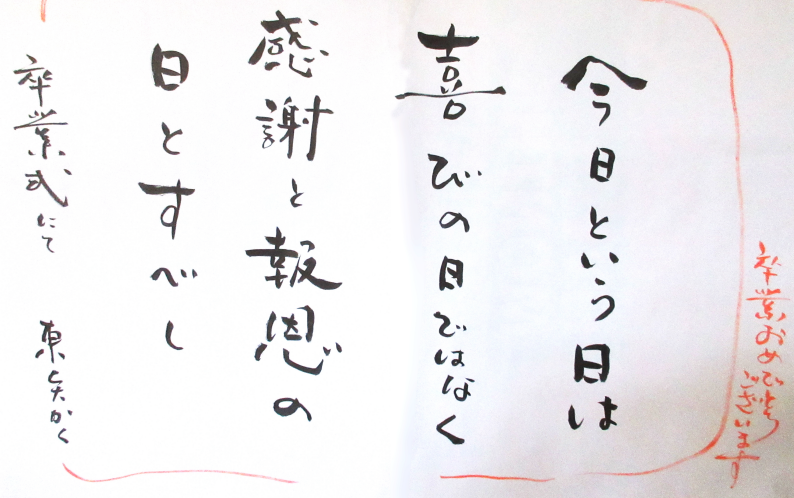 卒業おめでとう
ございます
今日という日は
喜びの日ではなく
感謝と報恩の
日とすべし
卒業式にて
東